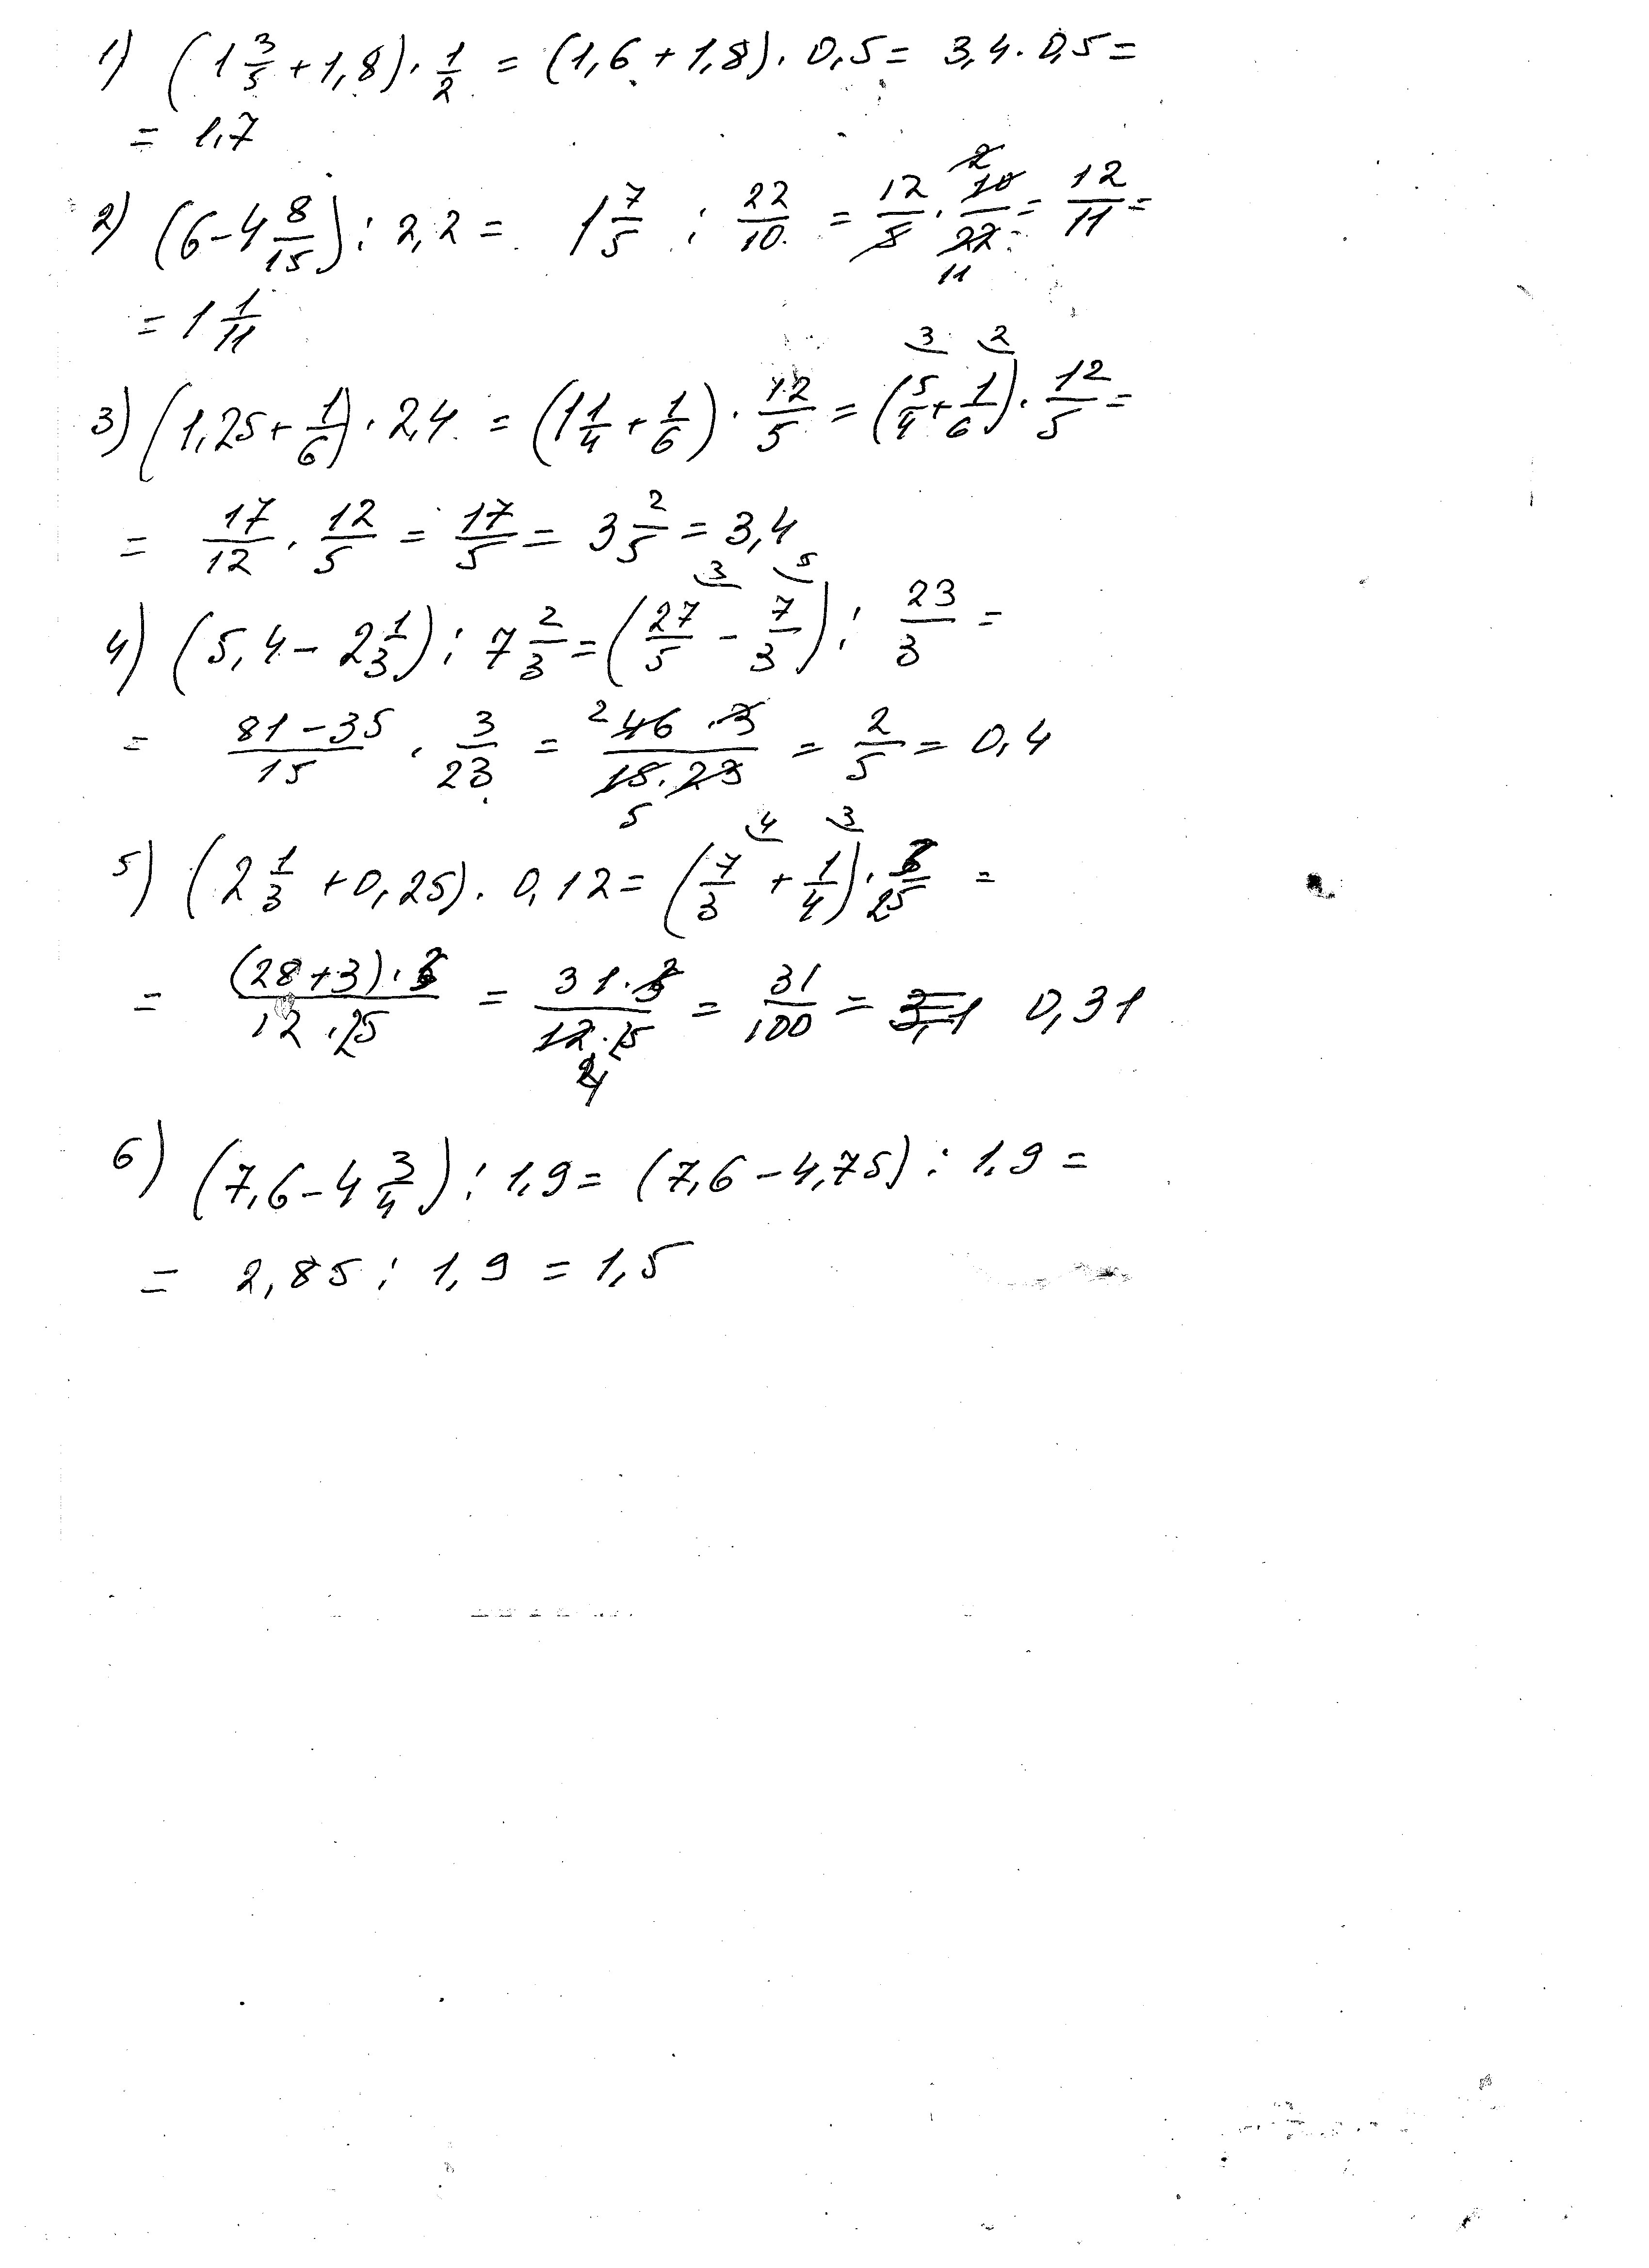 1) (1 3/5 + 1,8) · 1/2 = (1,6 + 1,8) · 0,5 = 3,4 · 0,5 =
= 1,7
2) (6 - 4 8/15) : 2,2 = 1 7/5 : 22/10 = 12/5 · 10/22 = 12/11 =
2
11
= 1 1/11
3) (1,25 + 1/6) · 2,4 = (1 1/4 + 1/6) · 12/5 = (5/4 + 1/6) · 12/5 =
3 2
= 17/12 · 12/5 = 17/5 = 3 2/5 = 3,4
4) (5,4 - 2 1/3) : 7 2/3 = (27/5 - 7/3) : 23/3 =
3 5
= (81 - 35)/15 · 3/23 = (46 · 3)/(15 · 23) = 2/5 = 0,4
2
5
5) (2 1/3 + 0,25) · 0,12 = (7/3 + 1/4) · 3/25 =
4 3
= ((28 + 3) · 3)/(12 · 25) = (31 · 3)/(12 · 25) = 31/100 = 3,1 0,31
4
6) (7,6 - 4 3/4) : 1,9 = (7,6 - 4,75) : 1,9 =
= 2,85 : 1,9 = 1,5